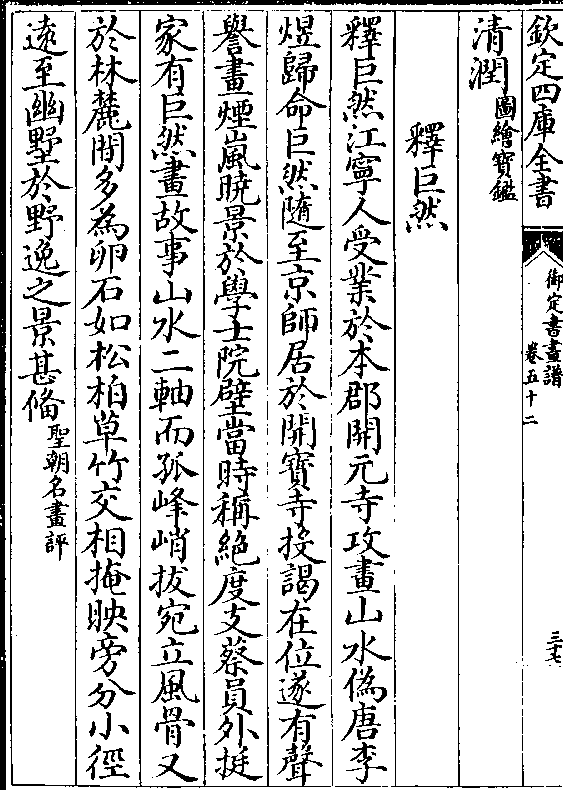 欽定四庫全書
御定書畫譜
卷五十二
三十七
清潤圖繪寶鑑
釋巨然
釋巨然江寧人受業於本郡開元寺攻畫山水偽唐李
煜歸命巨然隨至京師居於開寶寺投謁在位遂有聲
譽畫煙嵐曉景於學士院壁當時稱絶度支蔡員外挺
家有巨然畫故事山水二軸而孤峰峭拔宛立風骨又
於林麓間多為卵石如松柏草竹交相掩映旁分小徑
遠至幽墅於野逸之景甚備聖朝名畫評